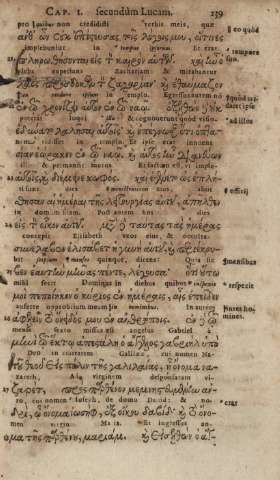 CAP. I. secundum Lucam. 239
pro quibus non credidisti verbis meis, quæ
ἀνθ᾽ ὧν οὐκ ἐπίστευσας τοῖς λόγοις μου, οἵτινες
implebuntur in tempus
πληρωθήσονται εἰς τὸν καιρὸν αὐτῶν. καὶ ἦν ὁ
plebs expectans Zachariam: & mirabantur
λαὸς προσδοκῶν τὸν ζαχαρίαν. καὶ ἐθαύμαζον
ἐν τῷ χρονίζειν αὐτὸν ἐν τῷ ναῷ.
poterat loqui ad & cognouerunt quod visio-
ἐδύνατο λαλῆσαι αὐτοῖς. καὶ ἐπέγνωσαν ὅτι ὀπτα-
nem vidisset in Templo. & ipse erat innuens
σίαν ἑώρακεν ἐν τῷ ναῷ. καὶ αὐτὸς ἦν διανεύων
& permansit mutus. Et factum est, imple-
αὐτοῖς, καὶ διέμενε κωφός. καὶ ἐγένετο ὡς ἐπλή-
ti sunt dies
σθησαν αἱ ἡμέραι τῆς λειτουργίας αὐτοῦ, ἀπῆλθεν
in domum suam. Post autem hos dies
εἰς τὸν οἶκον αὐτοῦ. μετὰ δὲ ταύτας τὰς ἡμέρας
concepit Elisabeth vxor eius, & occulta-
συνέλαβεν ἐλισάβετ ἡ γυνὴ αὐτοῦ, καὶ περιέκρυ-
bat quinque, dicens: Quia sic
βεν ἑαυτὴν μῆνας πέντε, λέγουσα· ὅτι οὕτω
mihi fecit Dominus in diebus quibus
μοι πεποίηκεν ὁ κύριος ἐν ἡμέραις, αἷς ἐπεῖδεν
auferre opprobrium meum in In autem
ἀφελεῖν τὸ ὄνειδός μου ἐν ἀνθρώποις. ἐν δὲ τῷ
mense sexto missus est angelus Gabriel à
μηνὶ τῷ ἕκτῳ ἀπεστάλη ὁ ἄγγελος γαβριὴλ ὑπὸ
Deo in ciuitatem Galilææ cui nomen Na-
τοῦ θεοῦ εἰς πόλιν τῆς γαλιλαίας, ᾗ ὄνομα να-
zareth, Ad virginem desponsatam vi-
ζαρέτ, πρὸς παρθένον μεμνηστευμένην ἀν-
ro, cui nomen Ioseph, de domo Dauid: & no-
δρί, ᾧ ὄνομα ἰωσήφ, ἐξ οἴκου δαβίδ· καὶ τὸ ὄνο-
men virginis Maria. Et ingressus an-
ομα τῆς παρθένου, μαριάμ. καὶ εἰσελθὼν ὁ ἄγ-
eo quòd
tempore suo.
quòd tardaret ipse
ad illos
officij
mensibus
respexit
inter homines.
erat